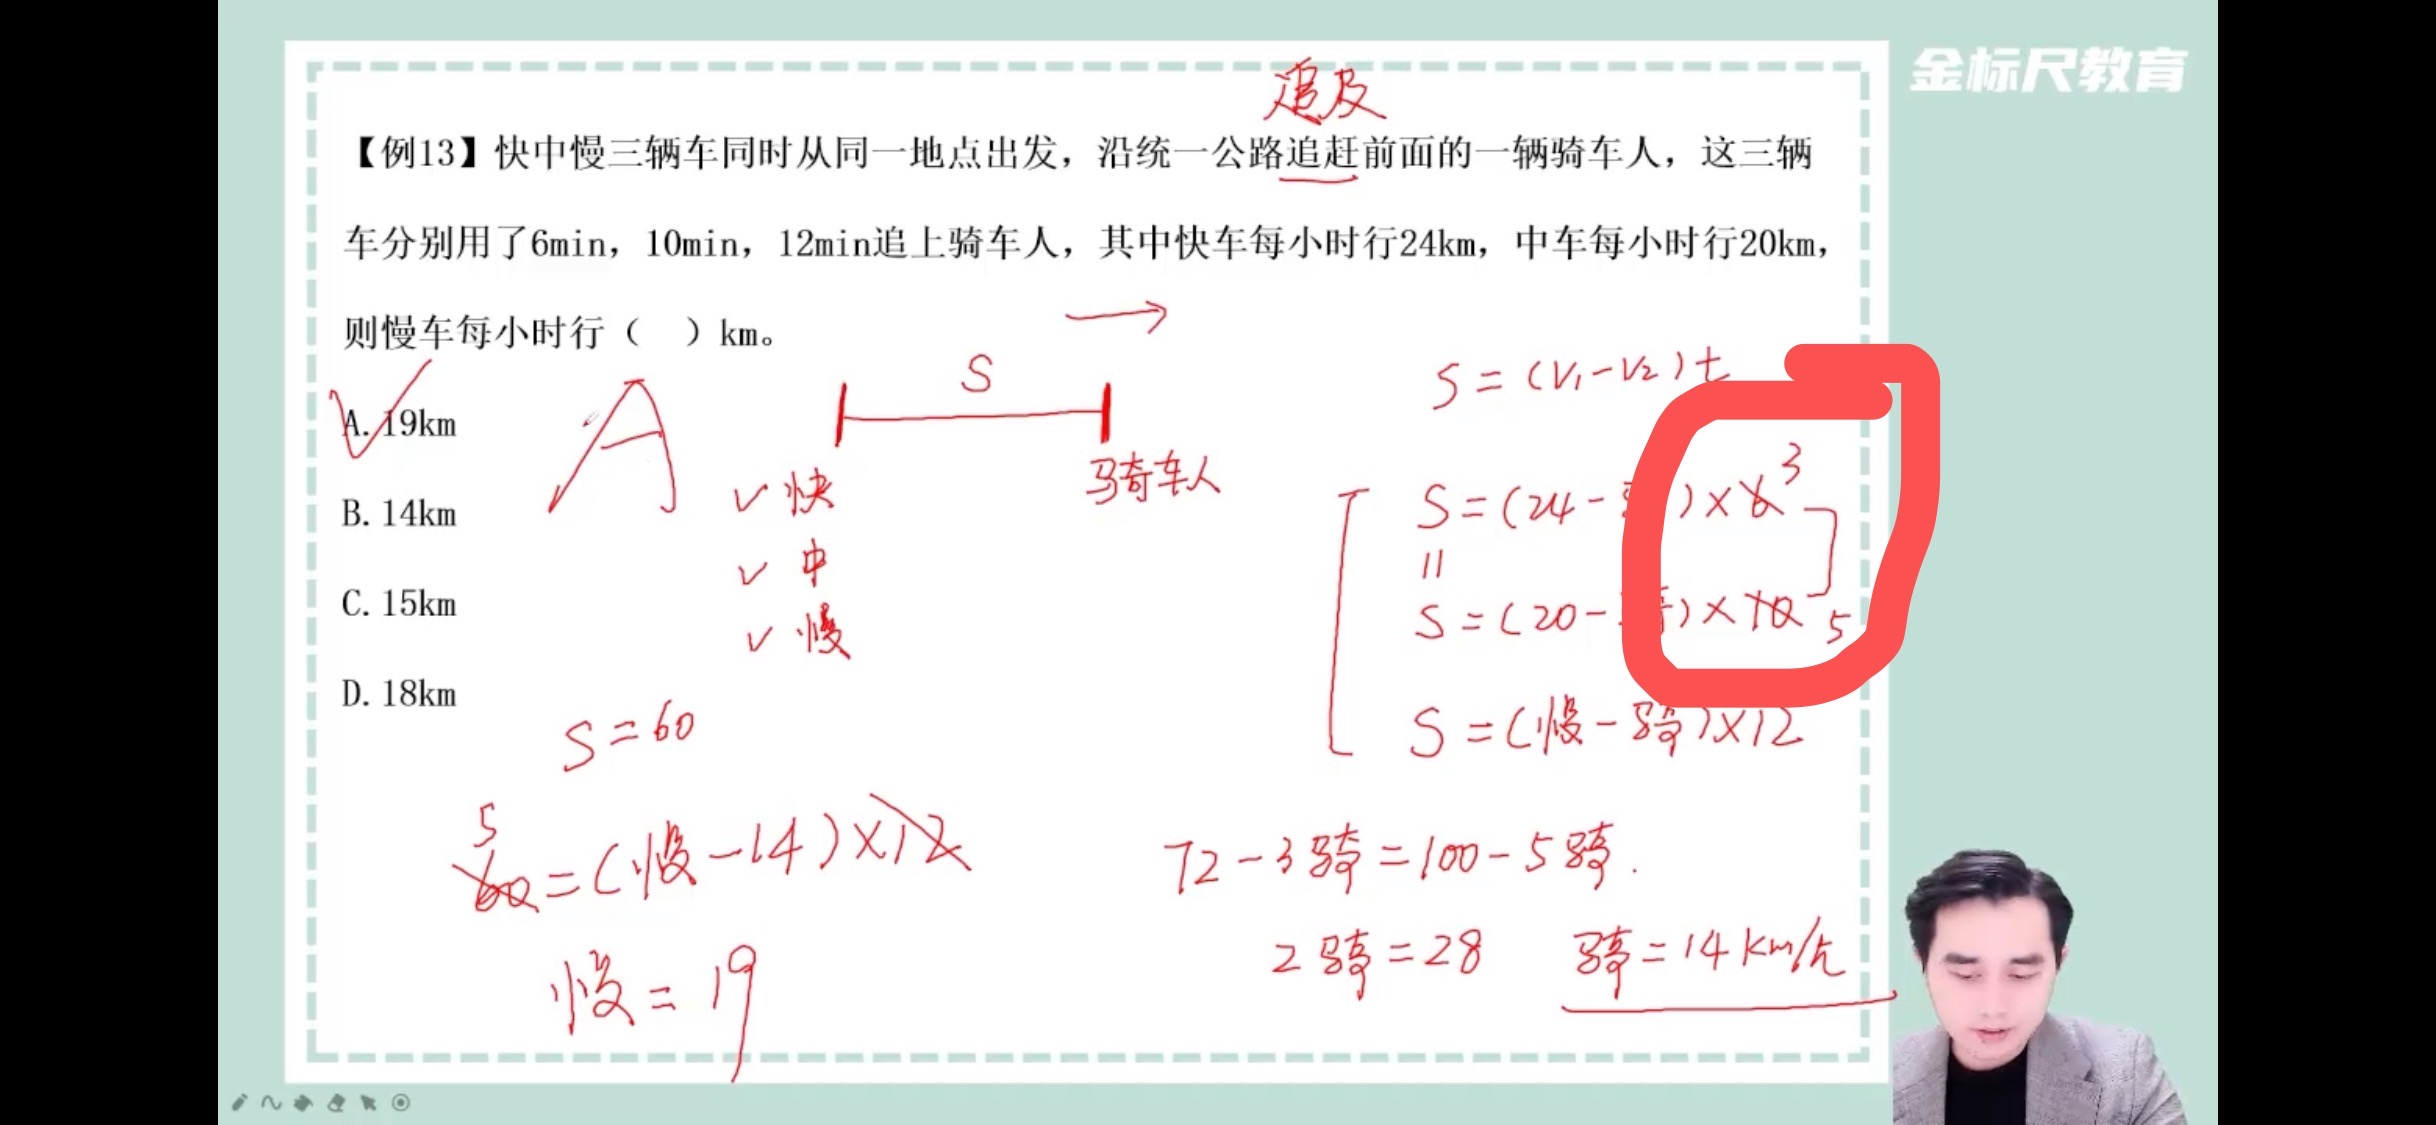 金标尺教育
追及
【例13】快中慢三辆车同时从同一地点出发，沿统一公路追赶前面的一辆骑车人，这三辆
车分别用了6min，10min，12min追上骑车人，其中快车每小时行24km，中车每小时行20km，
则慢车每小时行（ ）km。
A.19km
B.14km
C.15km
D.18km
A
S
骑车人
快
中
慢
S=(V₁-V₂)t
S=(24- )×6 3
=
S=(20- )×10 5
S=(慢-骑)×12
S=60
5
60=(慢-14)×12
慢=19
72-3骑=100-5骑.
2骑=28 骑=14km/h